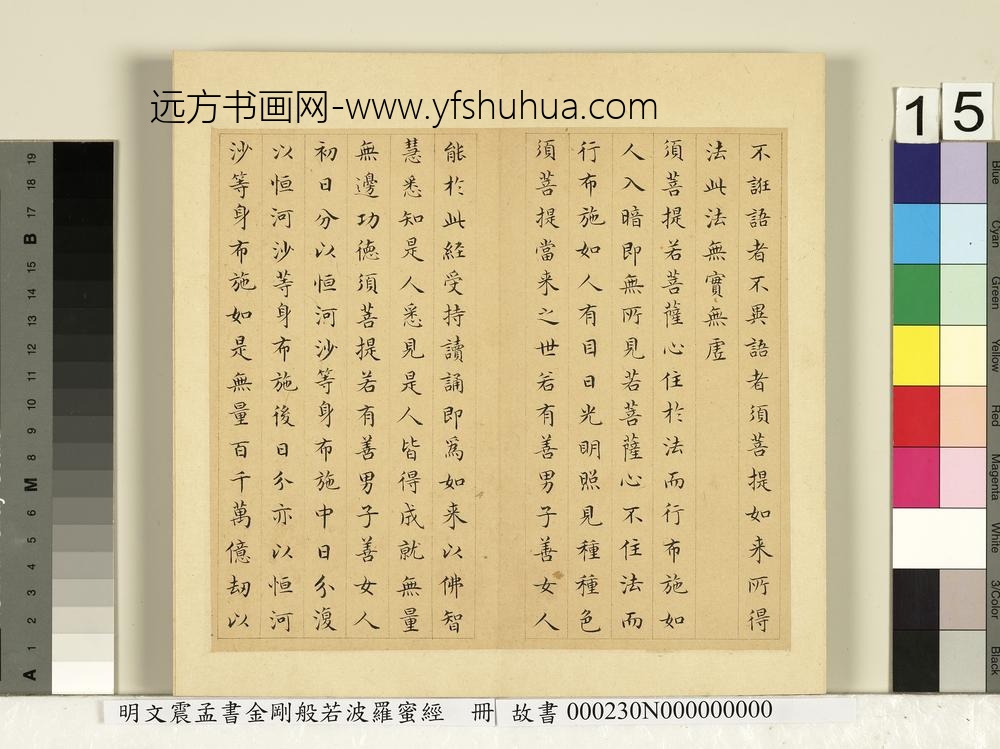 远方书画网-www.yfshuhua.com
15
不誑語者不異語者須菩提如来所得
法此法無實無虗
須菩提若菩薩心住於法而行布施如
人入暗即無所見若菩薩心不住法而
行布施如人有目日光明照見種種色
須菩提當来之世若有善男子善女人
能於此経受持讀誦即爲如来以佛智
慧悉知是人悉見是人皆得成就無量
無邊功德須菩提若有善男子善女人
初日分以恒河沙等身布施中日分復
以恒河沙等身布施後日分亦以恒河
沙等身布施如是無量百千萬億劫以
明文震孟書金剛般若波羅蜜經 冊 故書 000230N000000000
Blue
Cyan
Green
Yellow
Red
Magenta
White
3/Color
Black
A 1 2 3 4 5 6 M 8 9 10 11 12 13 14 15 B 17 18 19